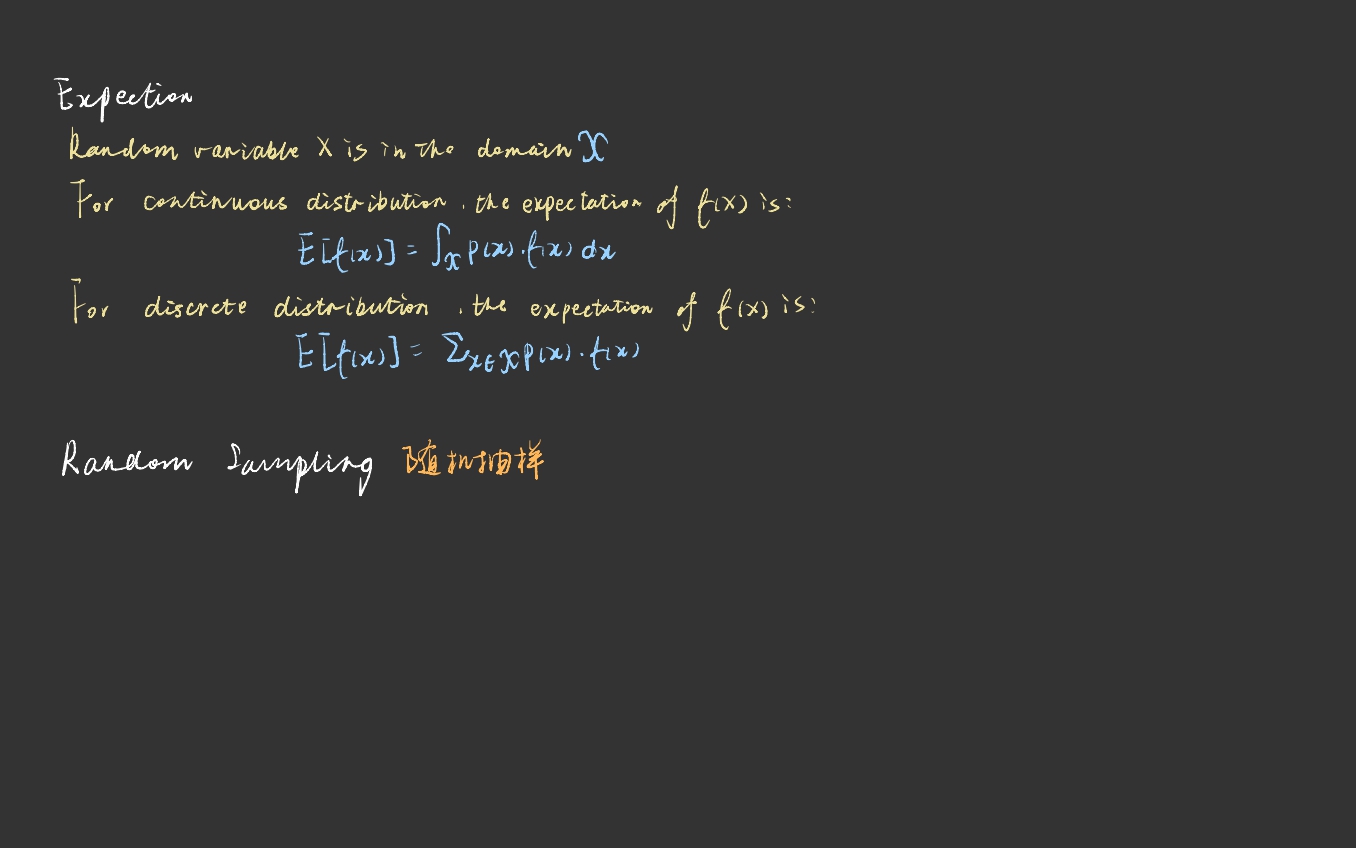 Expection
Random variable X is in the domain 𝒳
For continuous distribution, the expectation of f(X) is:
E[f(x)] = ∫𝒳 p(x)·f(x) dx
For discrete distribution, the expectation of f(x) is:
E[f(x)] = Σx∈𝒳 p(x)·f(x)
Random Sampling 随机抽样